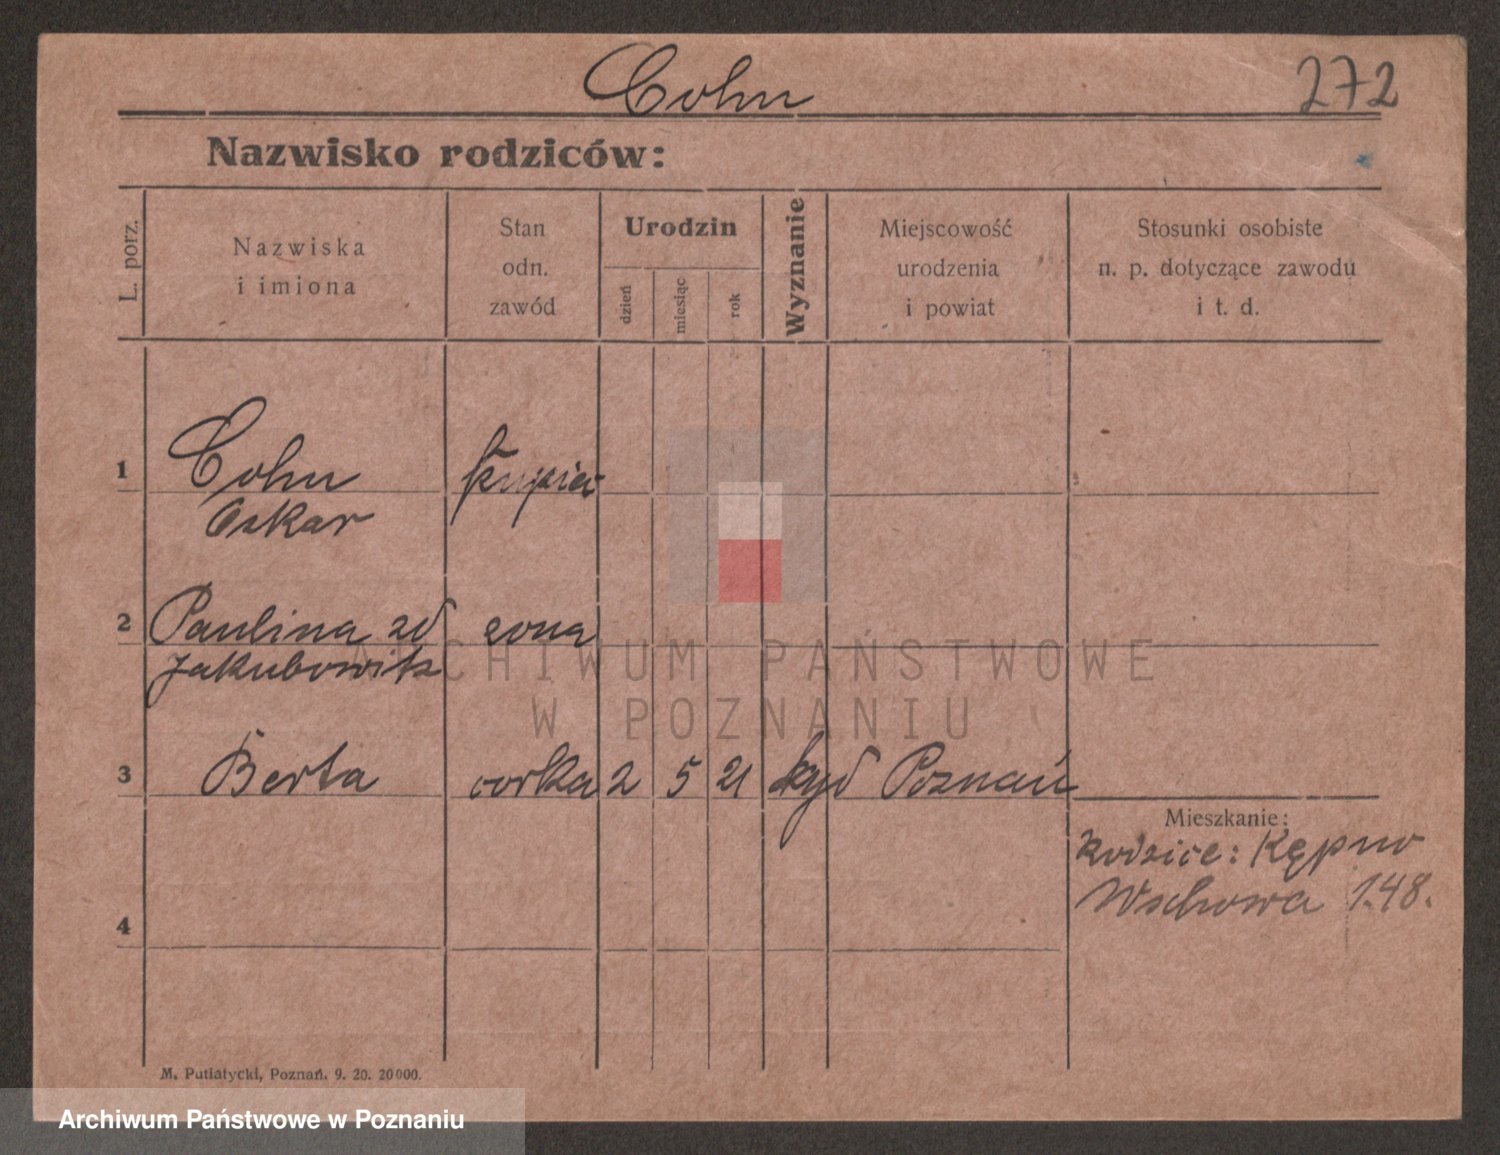 Cohn 272
Nazwisko rodziców:
L. porz.
Nazwiska
i imiona
Stan
odn.
zawód
Urodzin
dzień
miesiąc
rok
Wyznanie
Miejscowość
urodzenia
i powiat
Stosunki osobiste
n. p. dotyczące zawodu
i t. d.
1 Cohn kupiec
Oskar
2 Paulina zd żona
Jakubowitz
3 Berta córka 2 5 21 żyd Poznań
Mieszkanie:
Rodzice: Kępno
Wschowa 148.
4
M. Putiatycki, Poznań. 9. 20. 20000.
ARCHIWUM PAŃSTWOWE
W POZNANIU
Archiwum Państwowe w Poznaniu